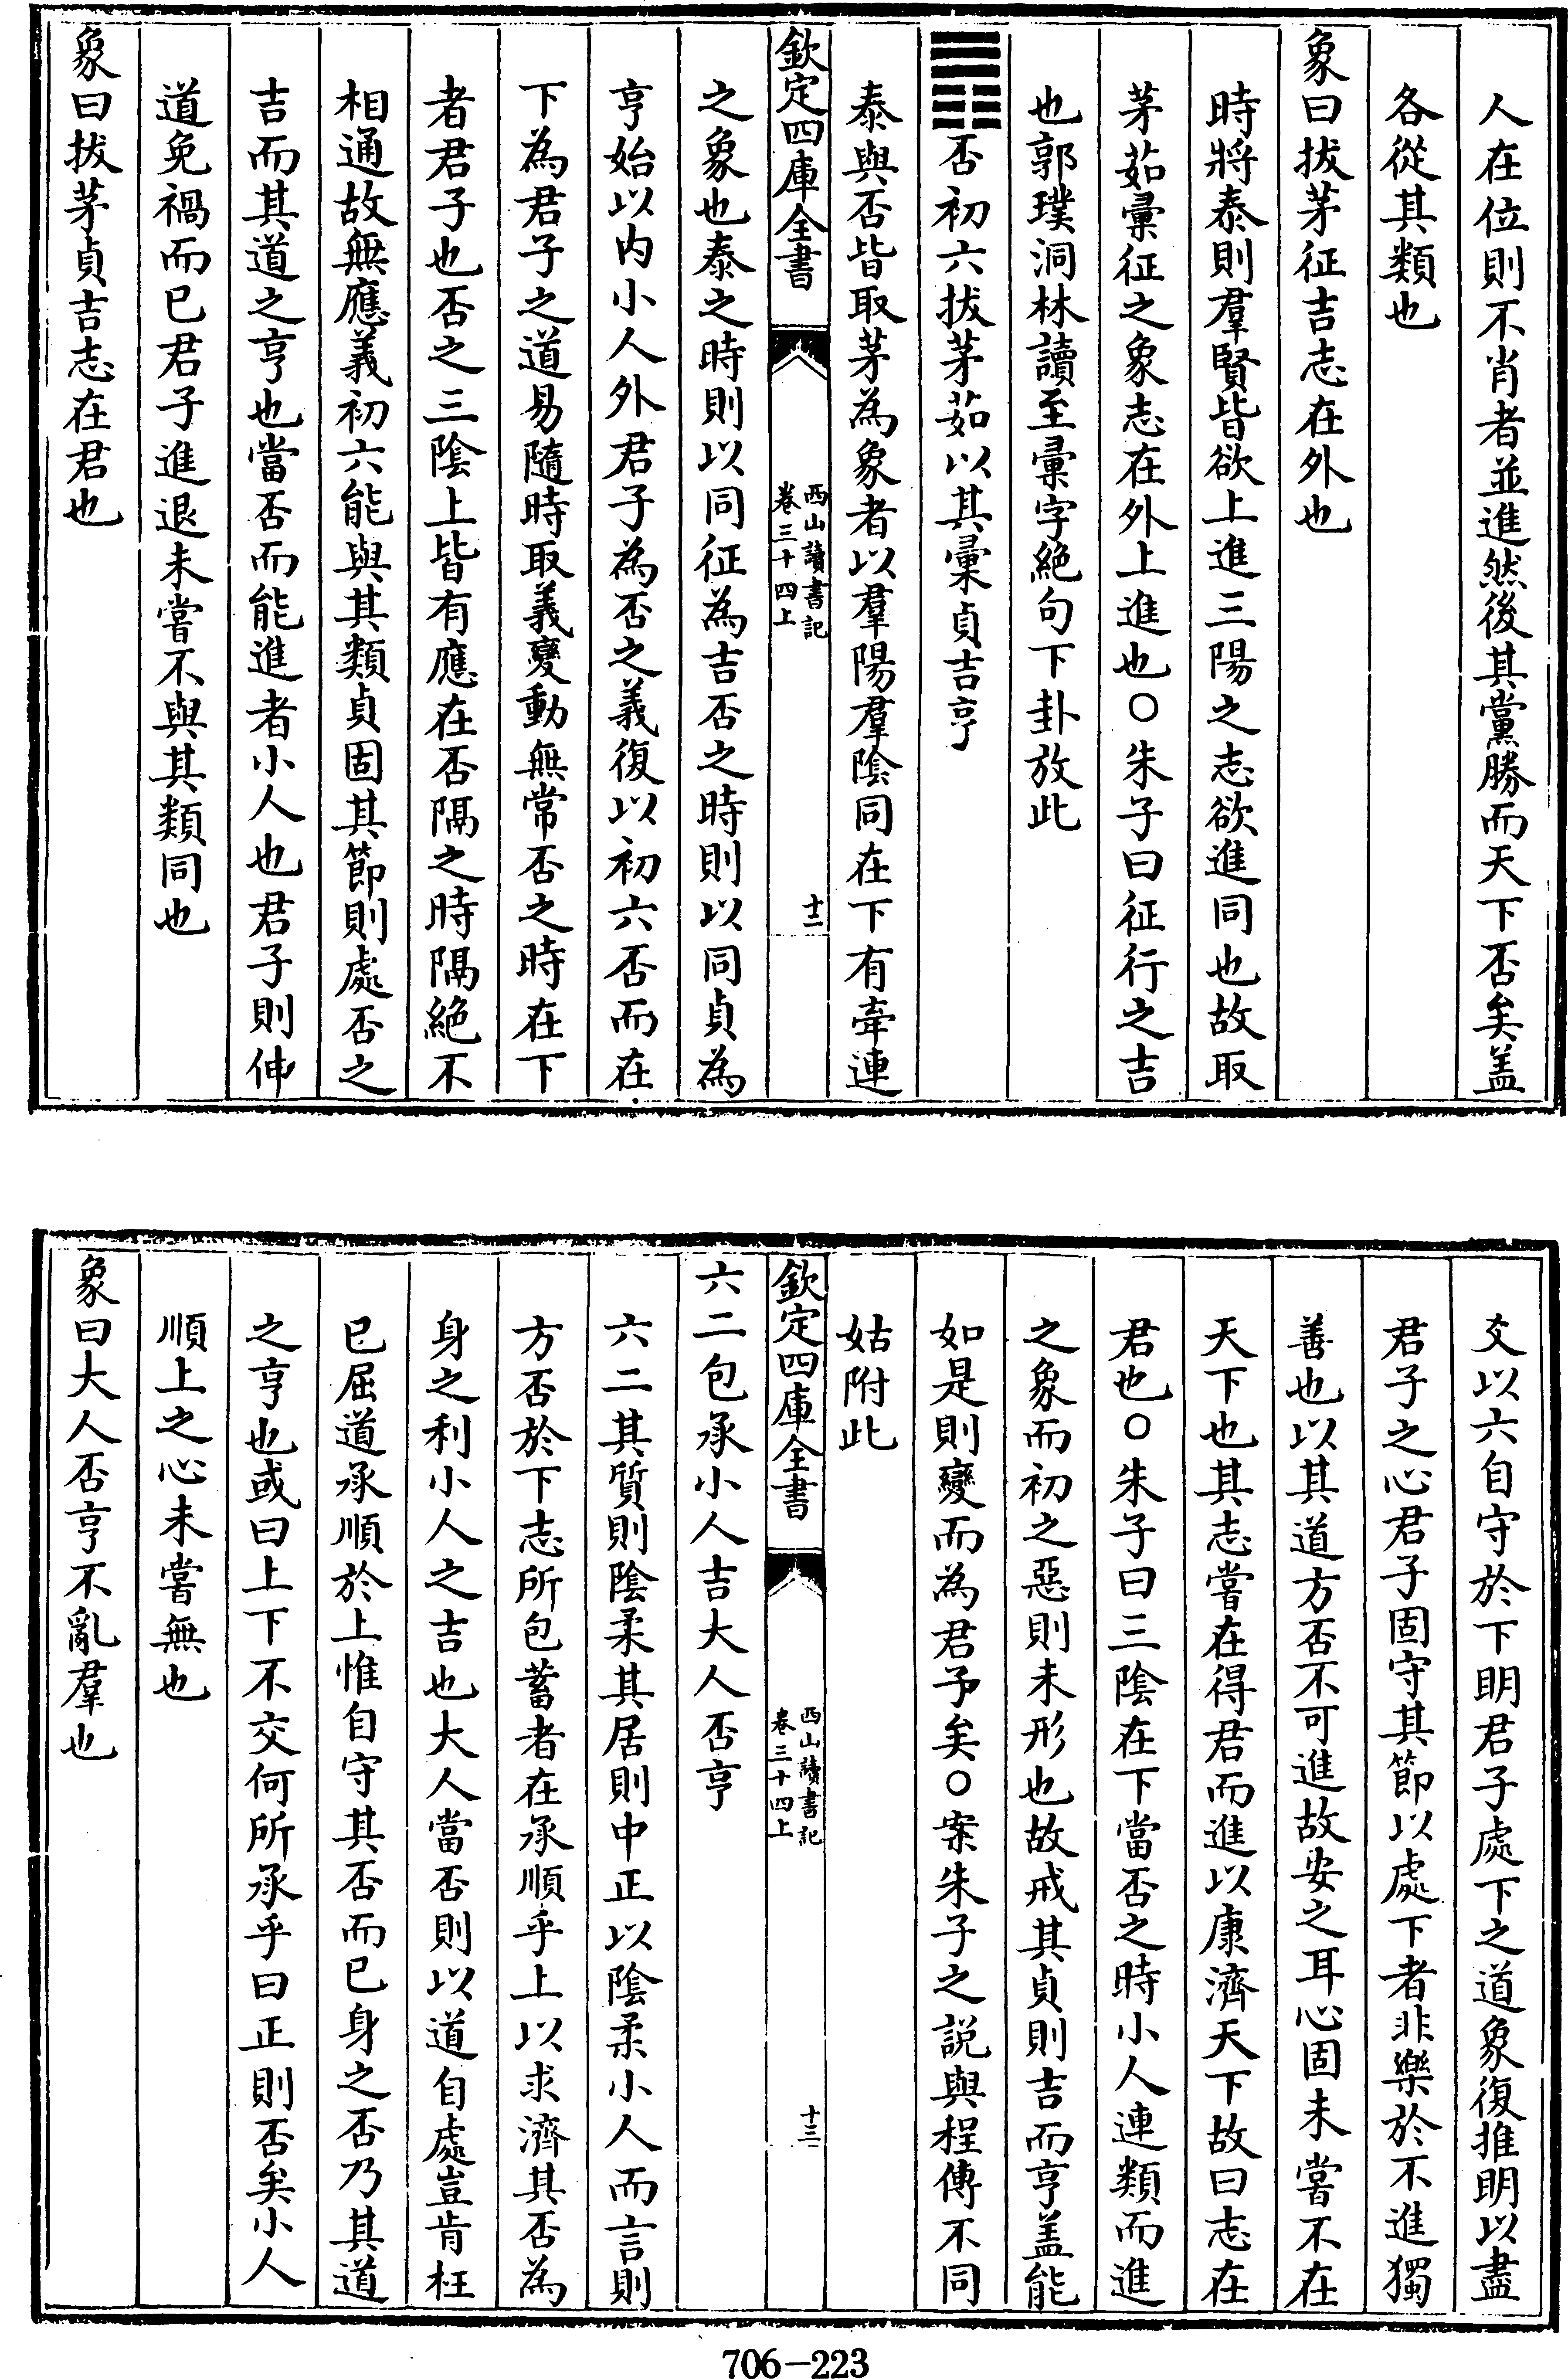 人在位則不肖者並進然後其黨勝而天下否矣盖
各從其類也
象曰拔茅征吉志在外也
時將泰則羣賢皆欲上進三陽之志欲進同也故取
茅茹彚征之象志在外上進也○朱子曰征行之吉
也郭璞洞林讀至彚字絶句下卦放此
䷋否初六拔茅茹以其彚貞吉亨
泰與否皆取茅為象者以羣陽羣陰同在下有牽連
欽定四庫全書
西山讀書記
卷三十四上
十二
之象也泰之時則以同征為吉否之時則以同貞為
亨始以内小人外君子為否之義復以初六否而在
下為君子之道易隨時取義變動無常否之時在下
者君子也否之三陰上皆有應在否隔之時隔絶不
相通故無應義初六能與其類貞固其節則處否之
吉而其道之亨也當否而能進者小人也君子則伸
道免禍而已君子進退未嘗不與其類同也
象曰拔茅貞吉志在君也
爻以六自守於下明君子處下之道象復推明以盡
君子之心君子固守其節以處下者非樂於不進獨
善也以其道方否不可進故安之耳心固未嘗不在
天下也其志嘗在得君而進以康濟天下故曰志在
君也○朱子曰三陰在下當否之時小人連類而進
之象而初之惡則未形也故戒其貞則吉而亨盖能
如是則變而為君予矣○案朱子之說與程傳不同
姑附此
欽定四庫全書
西山讀書記
卷三十四上
十三
六二包承小人吉大人否亨
六二其質則陰柔其居則中正以陰柔小人而言則
方否於下志所包蓄者在承順乎上以求濟其否為
身之利小人之吉也大人當否則以道自處豈肯枉
已屈道承順於上惟自守其否而已身之否乃其道
之亨也或曰上下不交何所承乎曰正則否矣小人
順上之心未嘗無也
象曰大人否亨不亂羣也
706-223